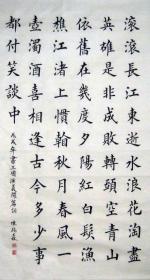 滾滾長江東逝水浪花淘盡
英雄是非成敗轉頭空青山
依舊在幾度夕陽紅白髮漁
樵江渚上慣看秋月春風一
壺濁酒喜相逢古今多少事
都付笑談中
戊戌年書三國演義開篇詞